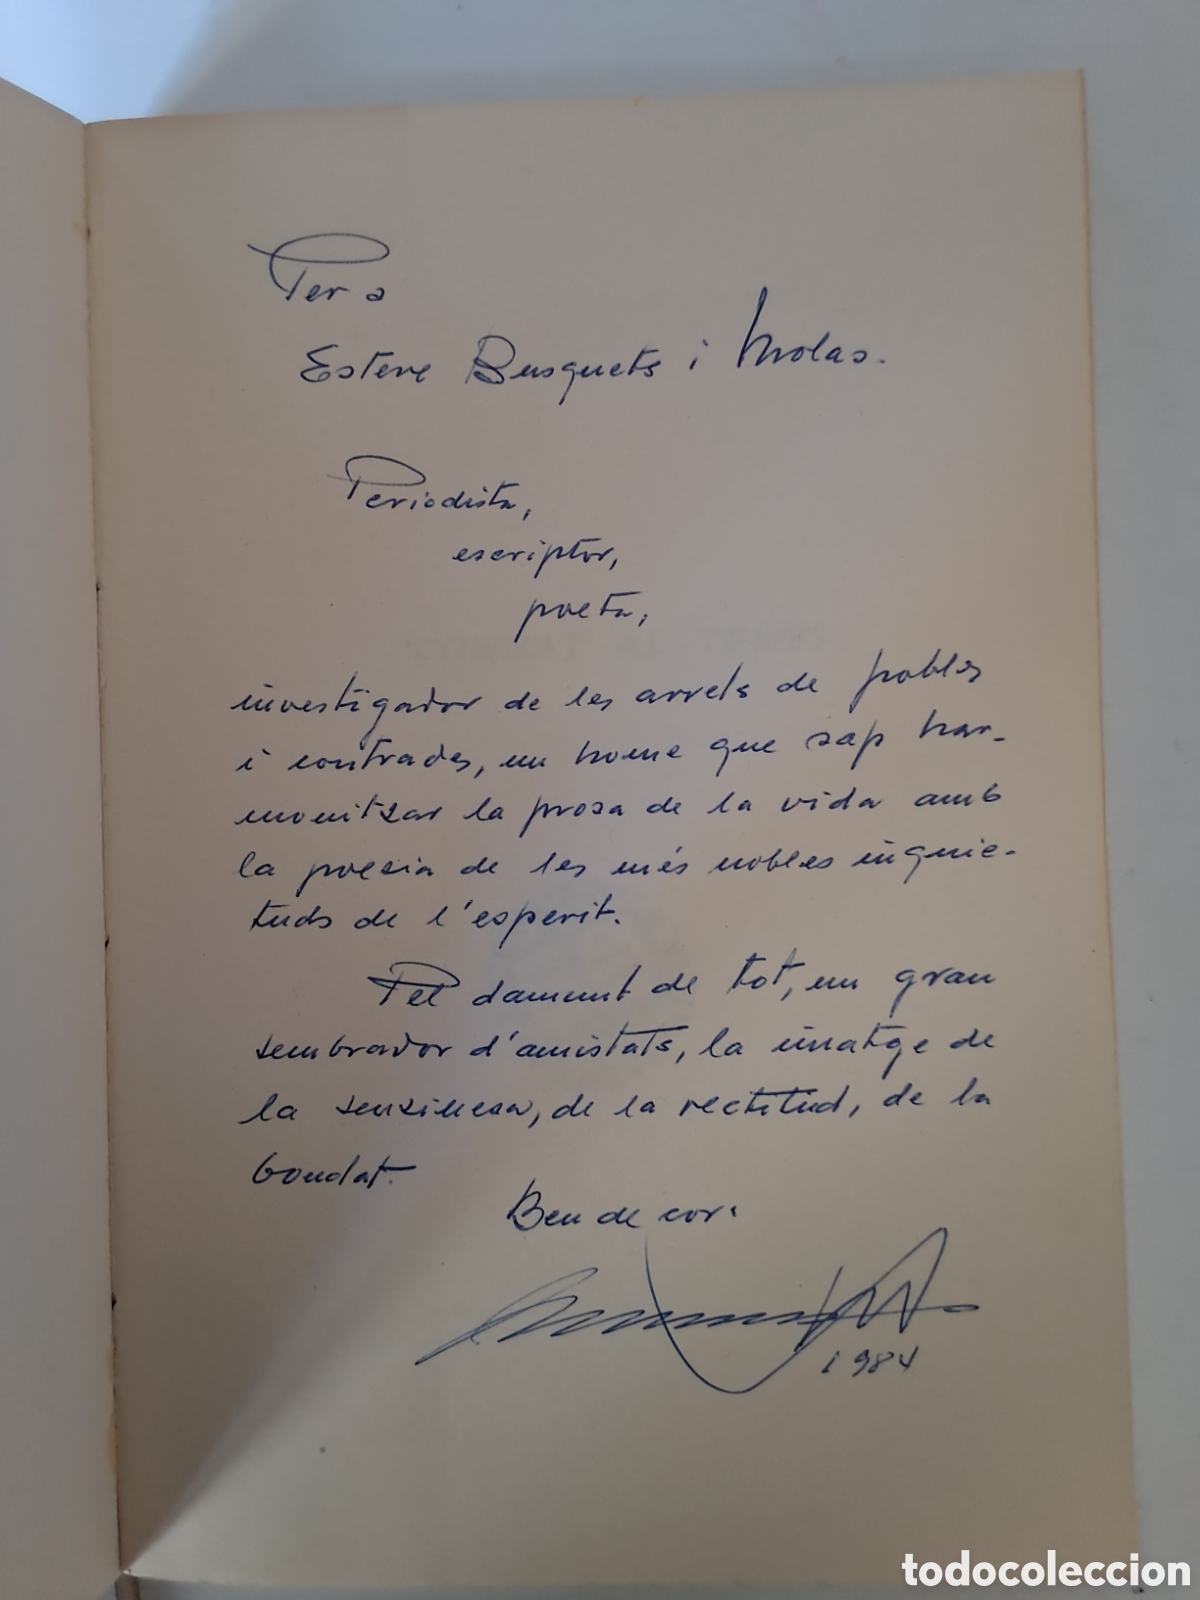 Per a
Esteve Busquets i Molas.
Periodista,
escriptor,
poeta,
investigador de les arrels de pobles
i contrades, un home que sap har-
monitzar la prosa de la vida amb
la poesia de les més nobles inquie-
tuds de l'esperit.
Pel damunt de tot, un gran
sembrador d'amistats, la imatge de
la senzillesa, de la rectitud, de la
bondat.
Ben de cor:
1984
todocoleccion